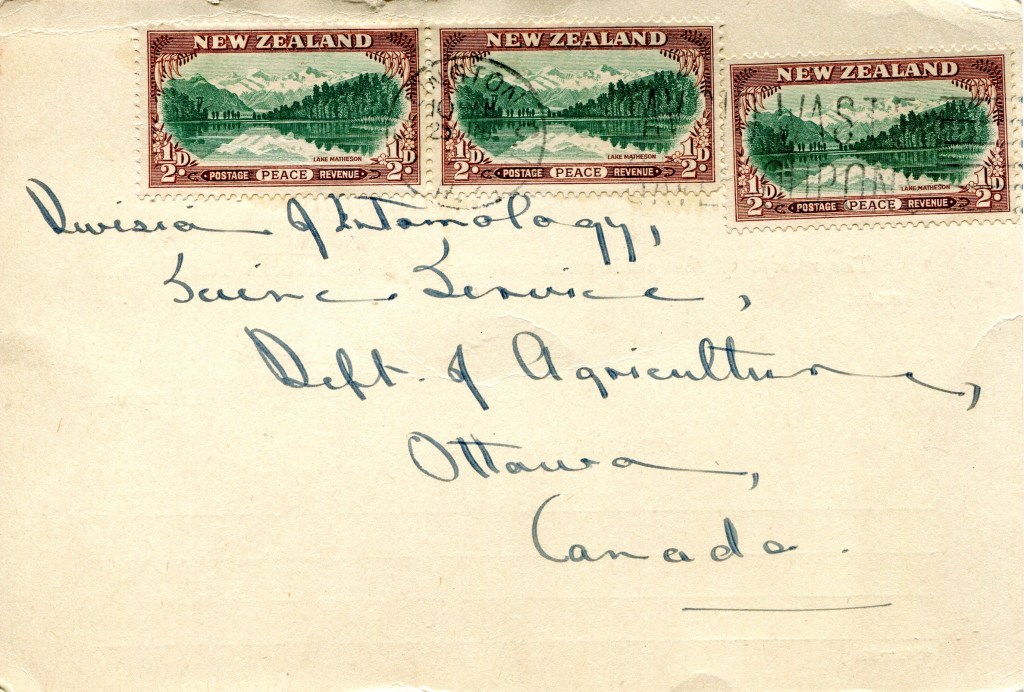 NEW ZEALAND
LAKE MATHESON
½D. POSTAGE PEACE REVENUE ½D.
NEW ZEALAND
LAKE MATHESON
½D. POSTAGE PEACE REVENUE ½D.
NEW ZEALAND
LAKE MATHESON
½D. POSTAGE PEACE REVENUE ½D.
Division of Entomology,
Science Service,
Dept. of Agriculture,
Ottawa,
Canada.